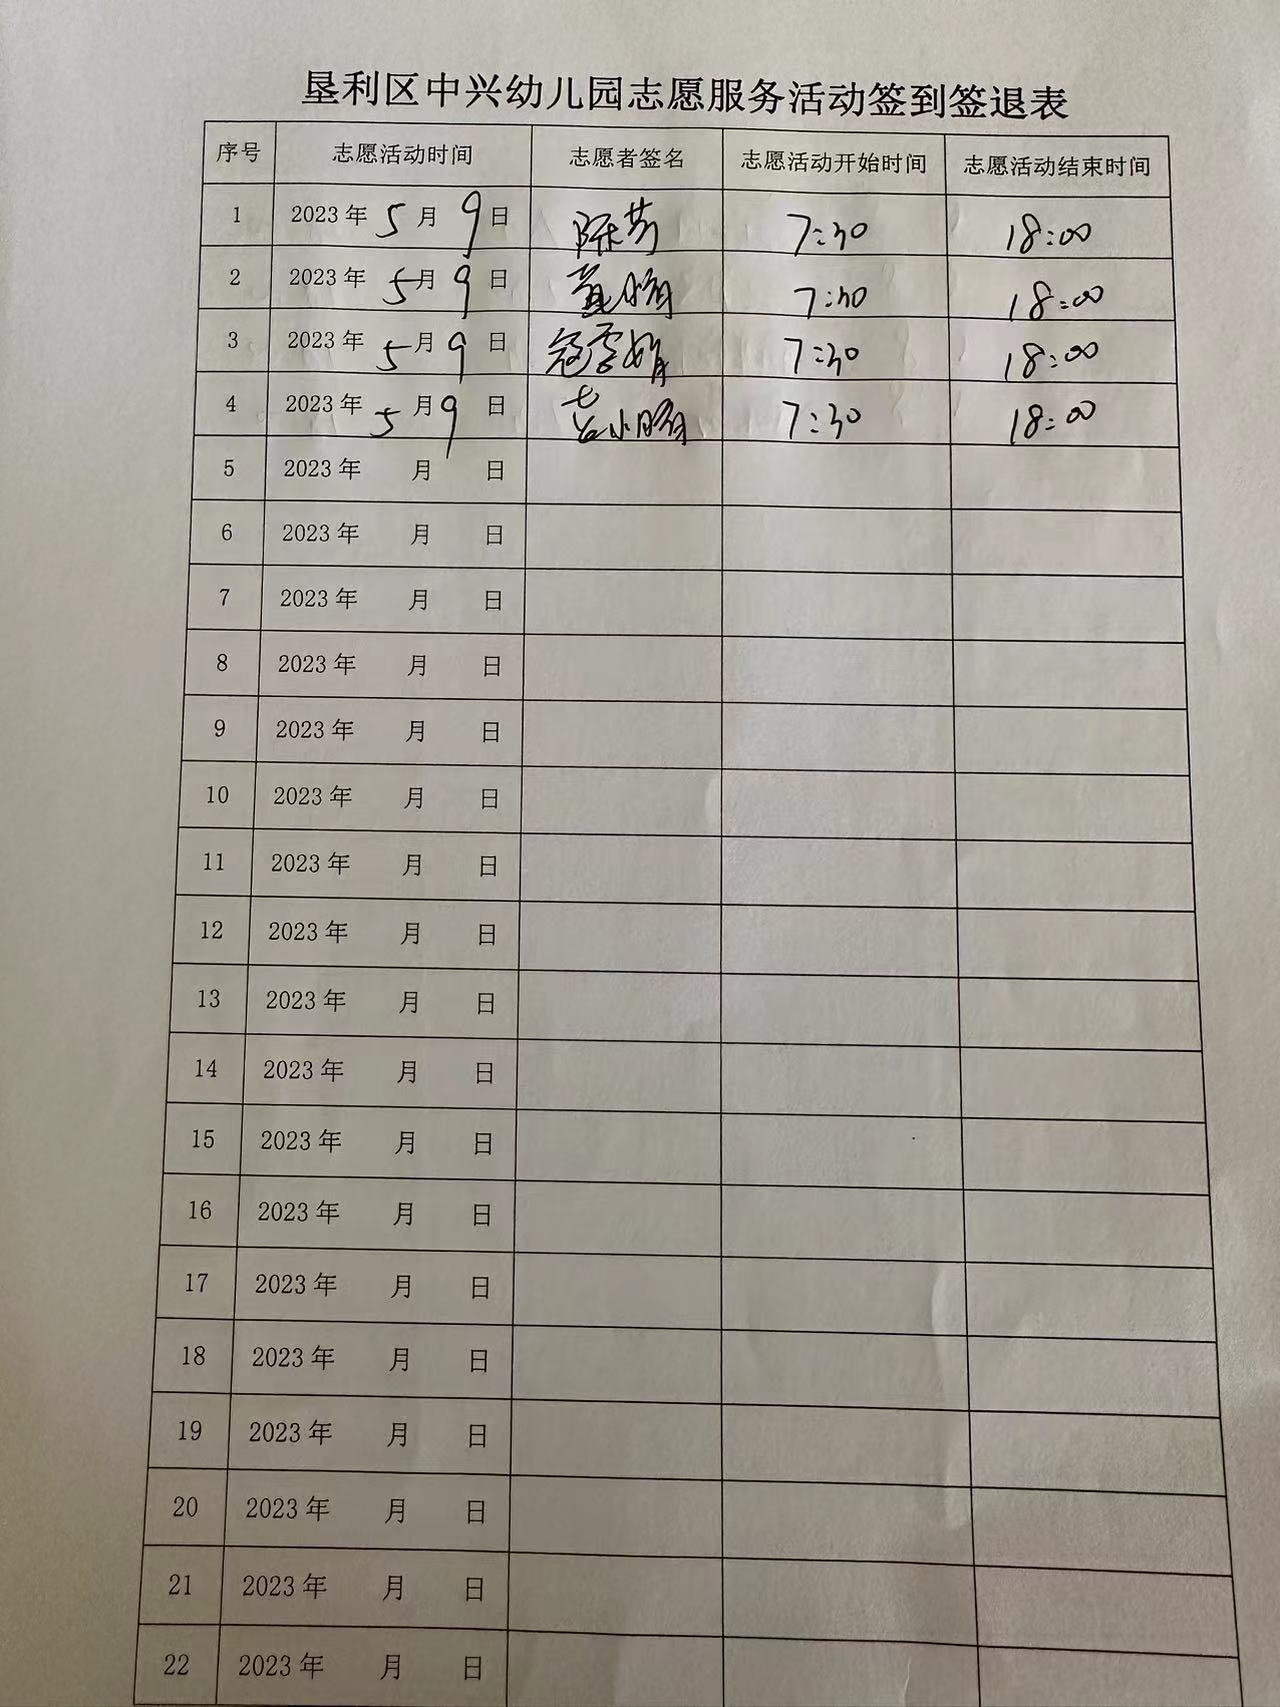 垦利区中兴幼儿园志愿服务活动签到签退表
序号 志愿活动时间 志愿者签名 志愿活动开始时间 志愿活动结束时间
1 2023年 5月 9日 陈芳 7:30 18:00
2 2023年 5月 9日 7:30 18:00
3 2023年 5月 9日 7:30 18:00
4 2023年 5月 9日 7:30 18:00
5 2023年 月 日
6 2023年 月 日
7 2023年 月 日
8 2023年 月 日
9 2023年 月 日
10 2023年 月 日
11 2023年 月 日
12 2023年 月 日
13 2023年 月 日
14 2023年 月 日
15 2023年 月 日
16 2023年 月 日
17 2023年 月 日
18 2023年 月 日
19 2023年 月 日
20 2023年 月 日
21 2023年 月 日
22 2023年 月 日